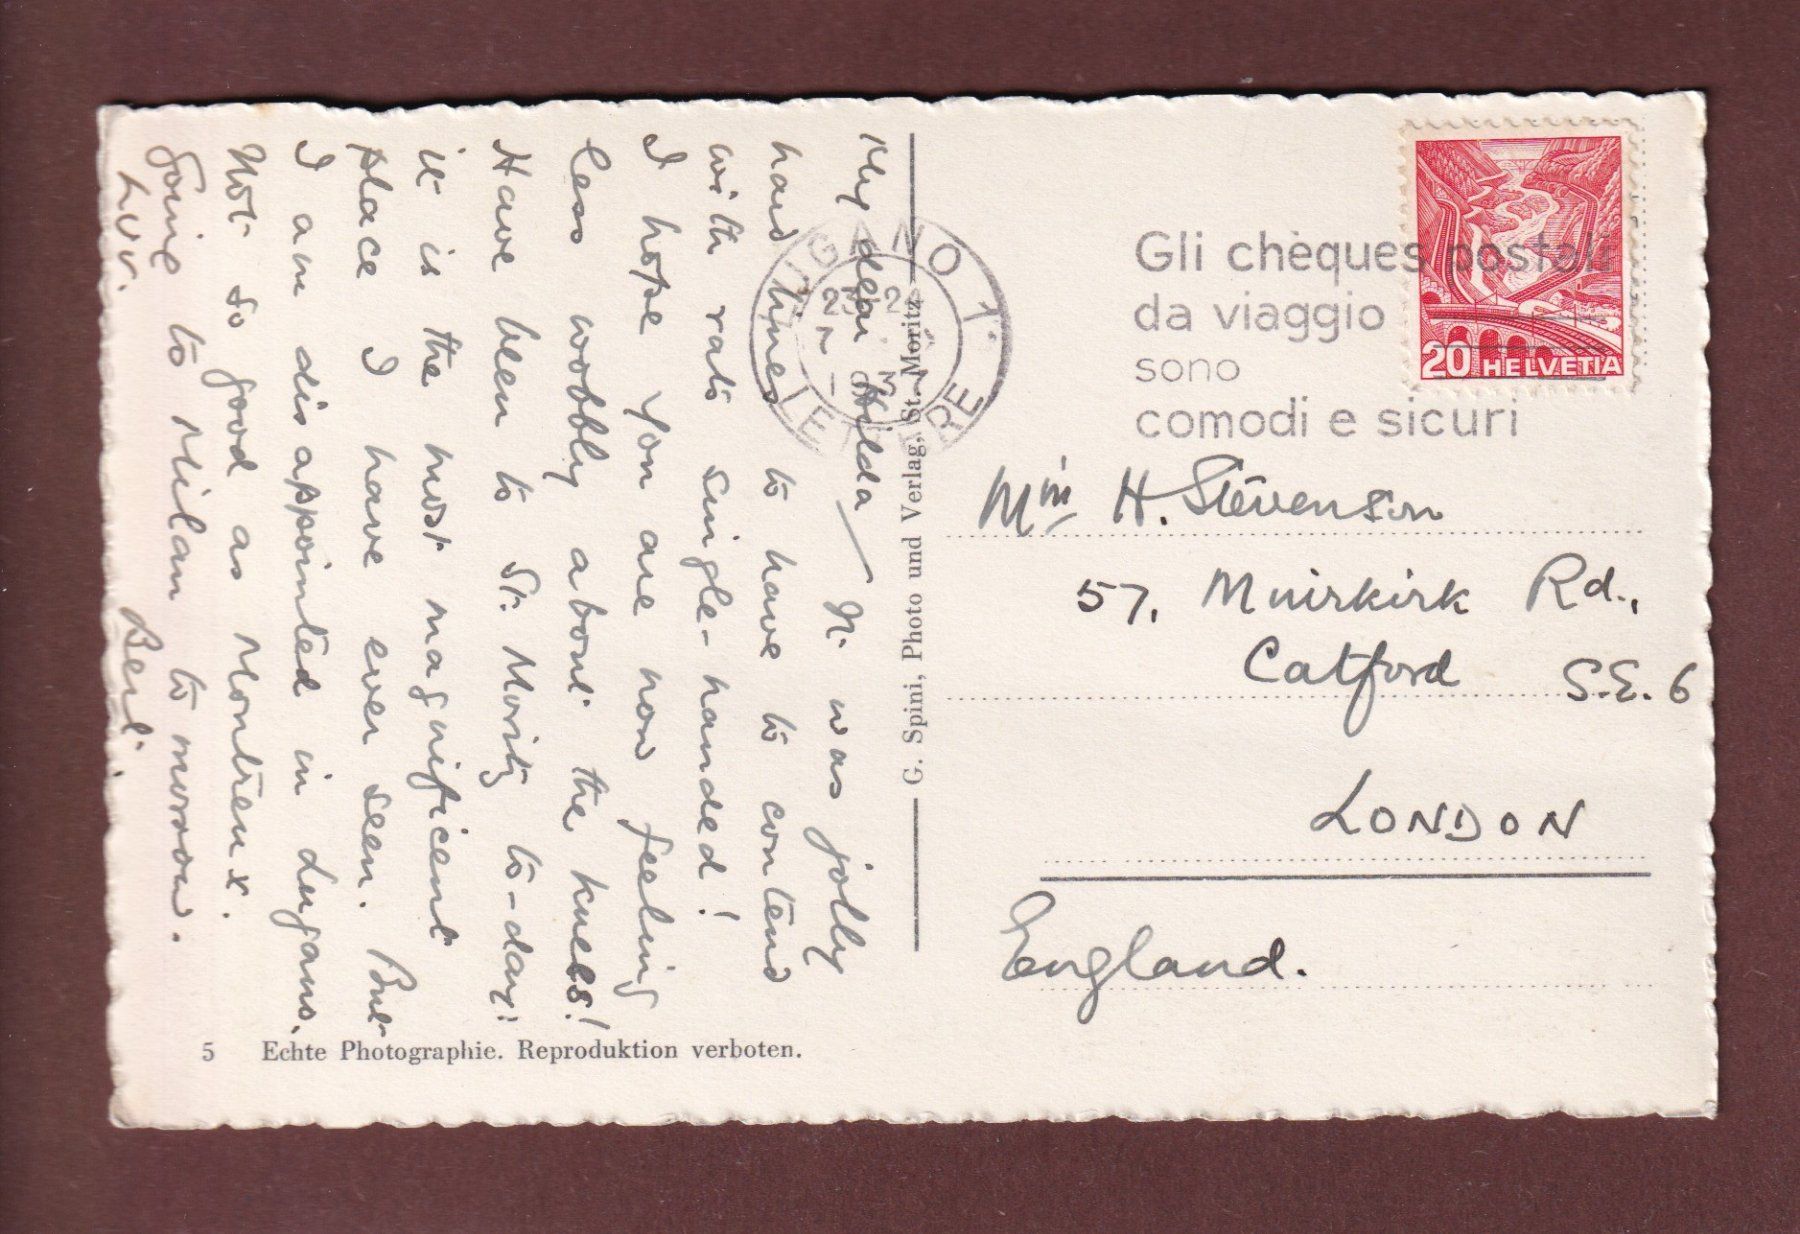 My dear Hilda — It was jolly
hard lines to have to contend
with rats single-handed!
I hope you are now feeling
less wobbly about the knees!
Have been to St. Moritz to-day;
it is the most magnificent
place I have ever seen. But
I am disappointed in Lugano.
Not so good as Montreux.
Going to Milan to-morrow.
Luv.
G. Spini, Photo und Verlag, St. Moritz
5 Echte Photographie. Reproduktion verboten.
LUGANO 1
LETTERE
Gli chèques postali
da viaggio
sono
comodi e sicuri
20 HELVETIA
Miss H. Stevenson
57, Muirkirk Rd.,
Catford S.E. 6
LONDON
England.